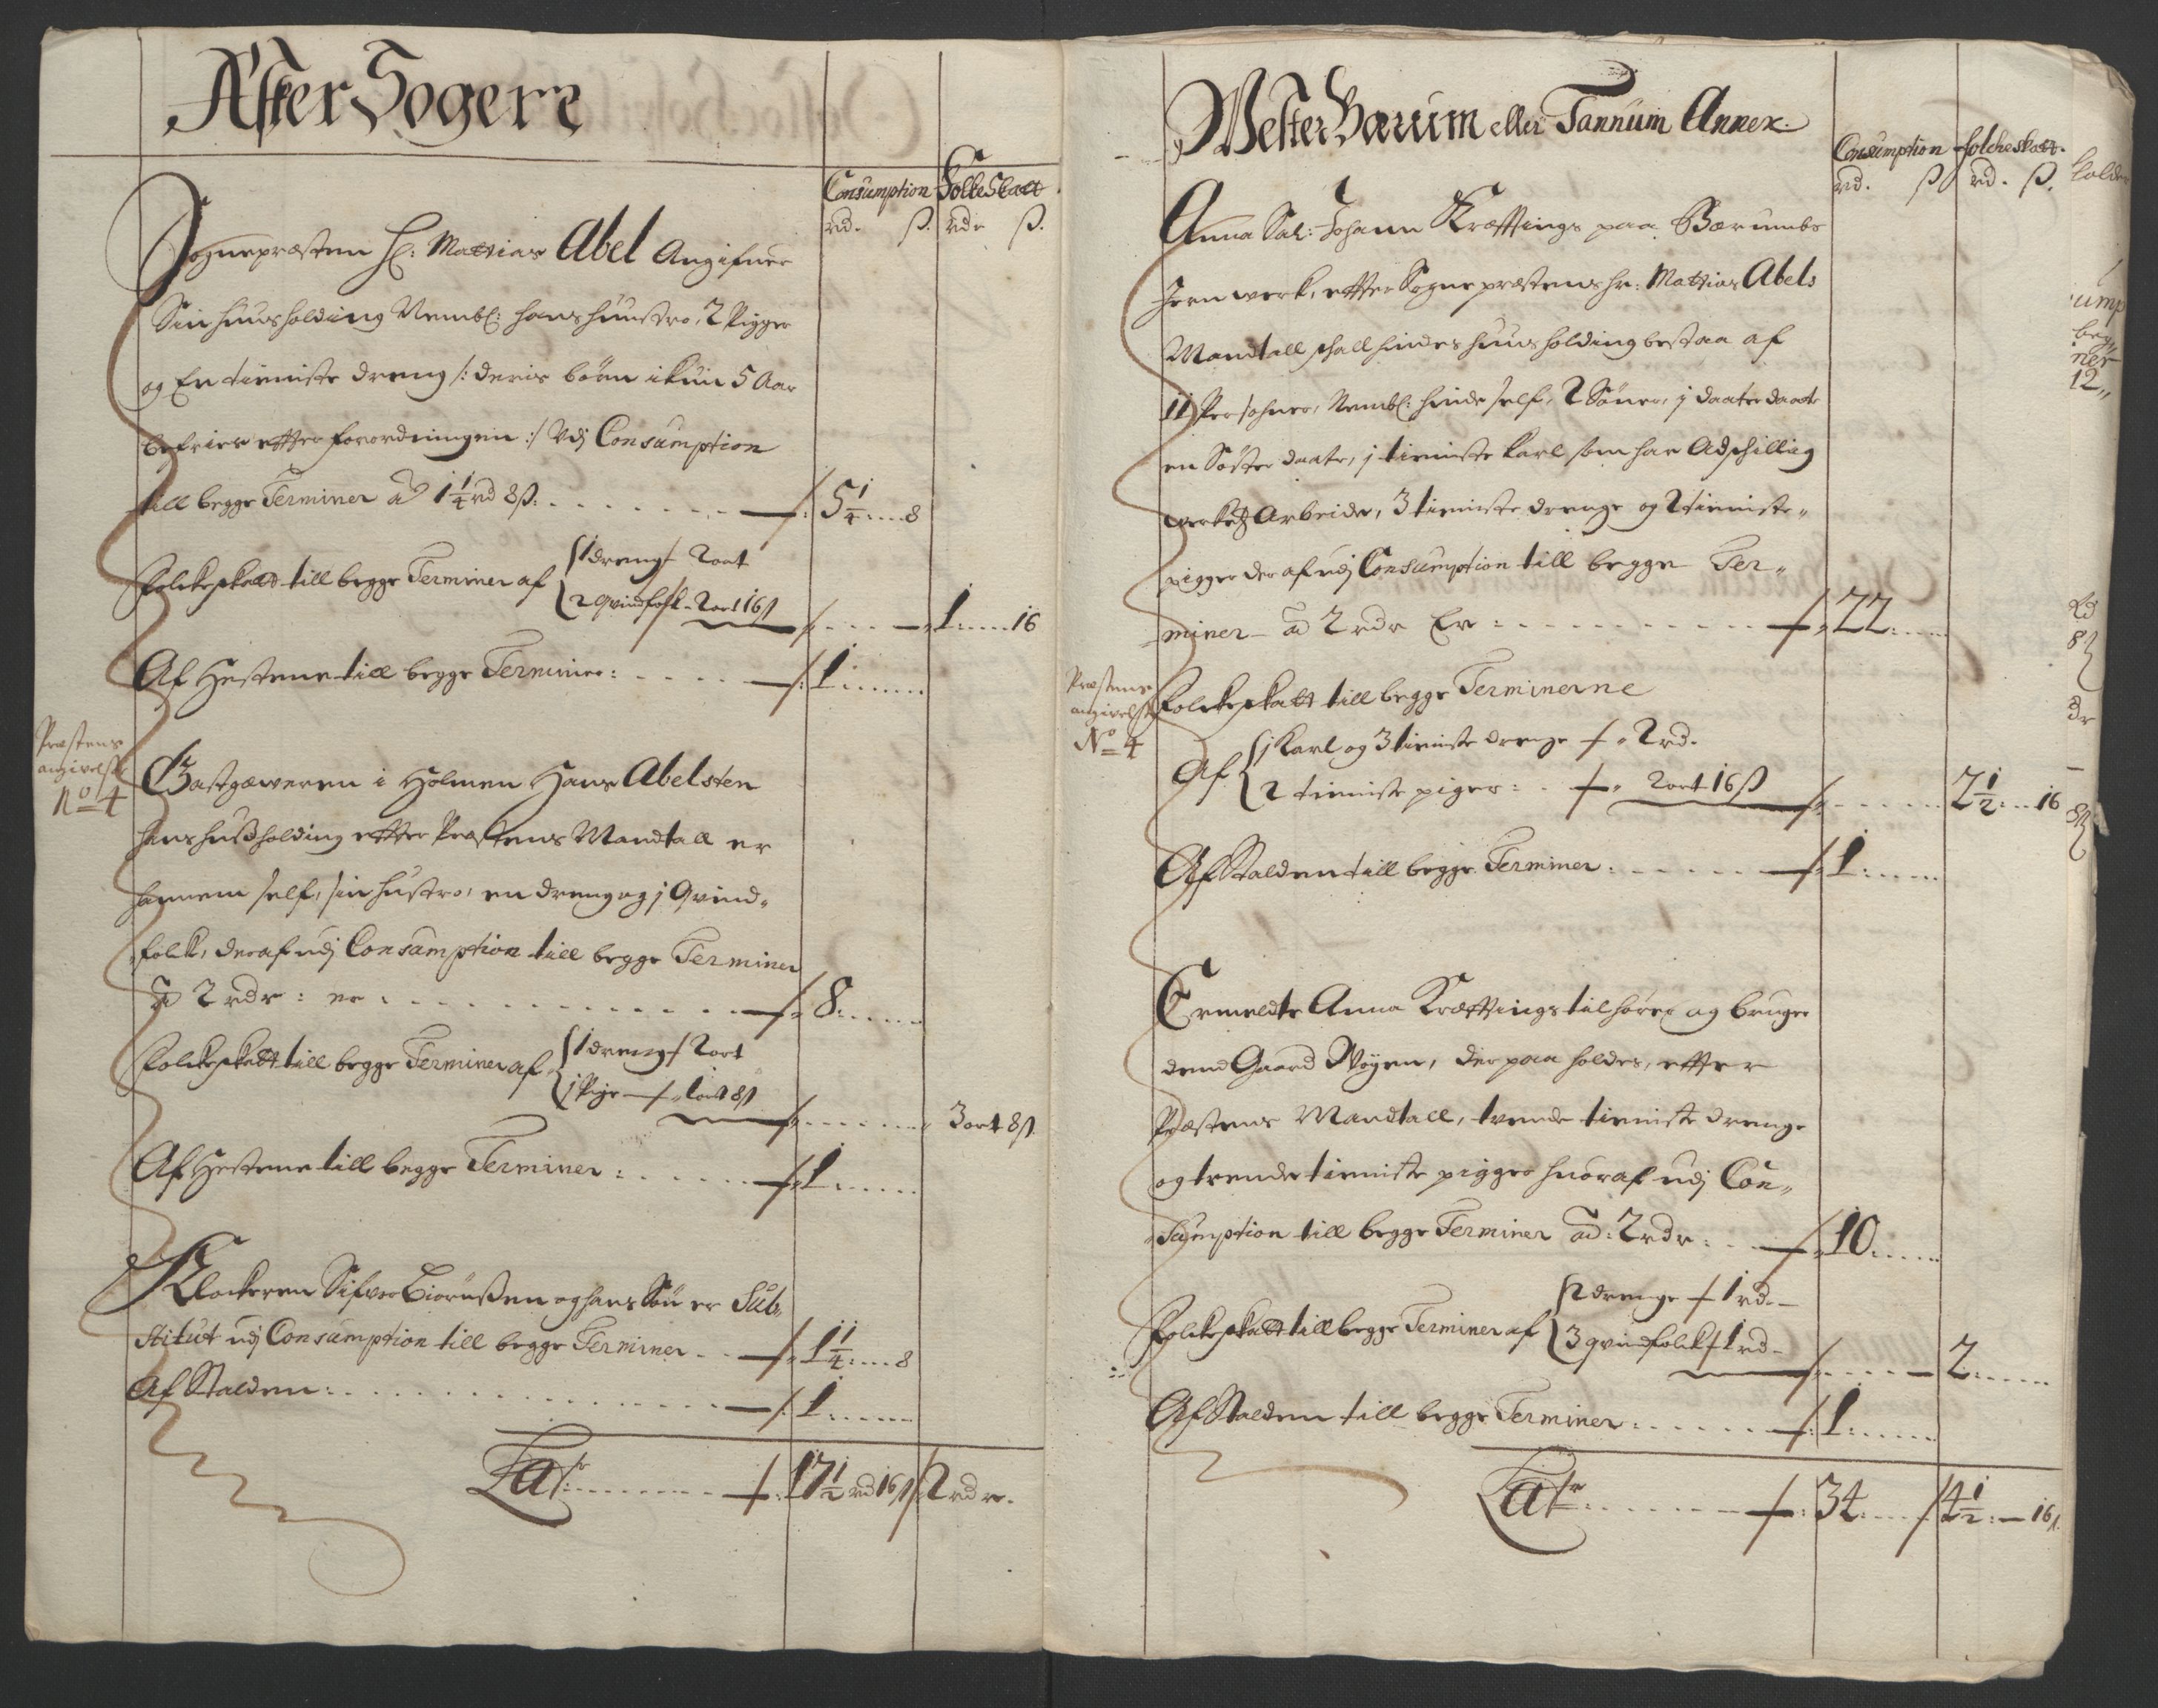 Asker Sogere
Consumption FolkeSkatt
rd. ß. rdr ß.
Sognepræsten Hr: Mattias Abel Angifuer
Sin huusholding Nembl: hans huustro, 2 Pigger
og En tieniste dreng /: deris börn ikun 5 Aar
befries effter forordningen :/ Udj Consumption
till begge Terminer ad 1 1/4 rd 8 ß: 5 1/4 8
Folckeskatt till begge Terminer af 1 dreng 2 ort
2 qvindfolk - 2 ort 16 ß 1 16
Af Hestene till begge Terminer: 1
Præstens
angivelse
No 4
Gastgæweren i Holmen Hans Abelsten
hans hußholding effter Præstens Mandtall er
hannem self, sin hustro, en dreng og j Qvind-
folck, deraf udj Consumption till begge Terminer
ad 2 rdr: er 8
Folckeskatt till begge Terminer af 1 dreng 2 ort
j Pige 1 ort 8 ß 3 ort 8 ß
Af Hestene till begge Terminer: 1
Klockeren Sifver Biörnßen og hans Sön er Sub-
stitut udj Consumption till begge Terminer 1 1/4 8
Af Stalden: 1
Latr 17 1/2 rd 16 ß 2 rdr.
Wester Bærum eller Tannum Annex.
Consumption Folckeskatt.
rd. ß rd. ß.
Anna Sal: Johann Kræfftings paa Bærumbs
Jernwerk, effter Sognepræstens hr: Mattias Abels
Mandtall skall hindes huusholding bestaa af
11 Persohner, Nembl: hinde self, 2 Söner, j daater daatr
en Söster daatr, j tieniste karl som har Adskillig
werkes Arbeider, 3 tieniste drenge og 2 tieniste
pigger deraf udj Consumption till begge Ter-
miner ad 2 rdr Er: 22
Præstens
angivelse
No 4
Folckeskatt till begge Terminerne
Af j Karl og 3 tieniste drenge 2 rd.
2 tieniste piger: 2 ort 16 ß 2 1/2 16
Af Stalden till begge Terminer: 1
Ermeldte Anna Kræfftings tilhörer og bruger
dend Gaard Wøyen, der paa holdes, effter
Præstens Mandtall, tvende tieniste drenge
og trende tieniste pigger huoraf udj Con-
sumption till begge Terminer ad: 2 rdr: 10
Folckeskatt till begge Terminer af 2 drenge 1 rd.
3 qvindfolck 1 rd 2
Af Stalden till begge Terminer: 1
Latr 34 4 1/2 16 ß.